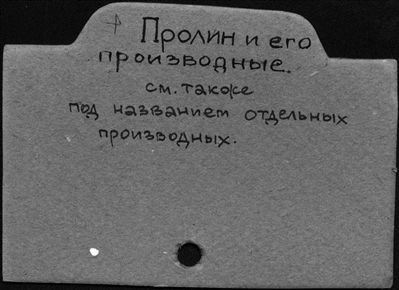 Пролин и его
производные.
см. также
под названием отдельных
производных.